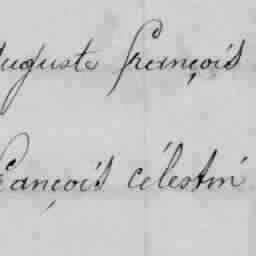 Auguste françois
françois célestin